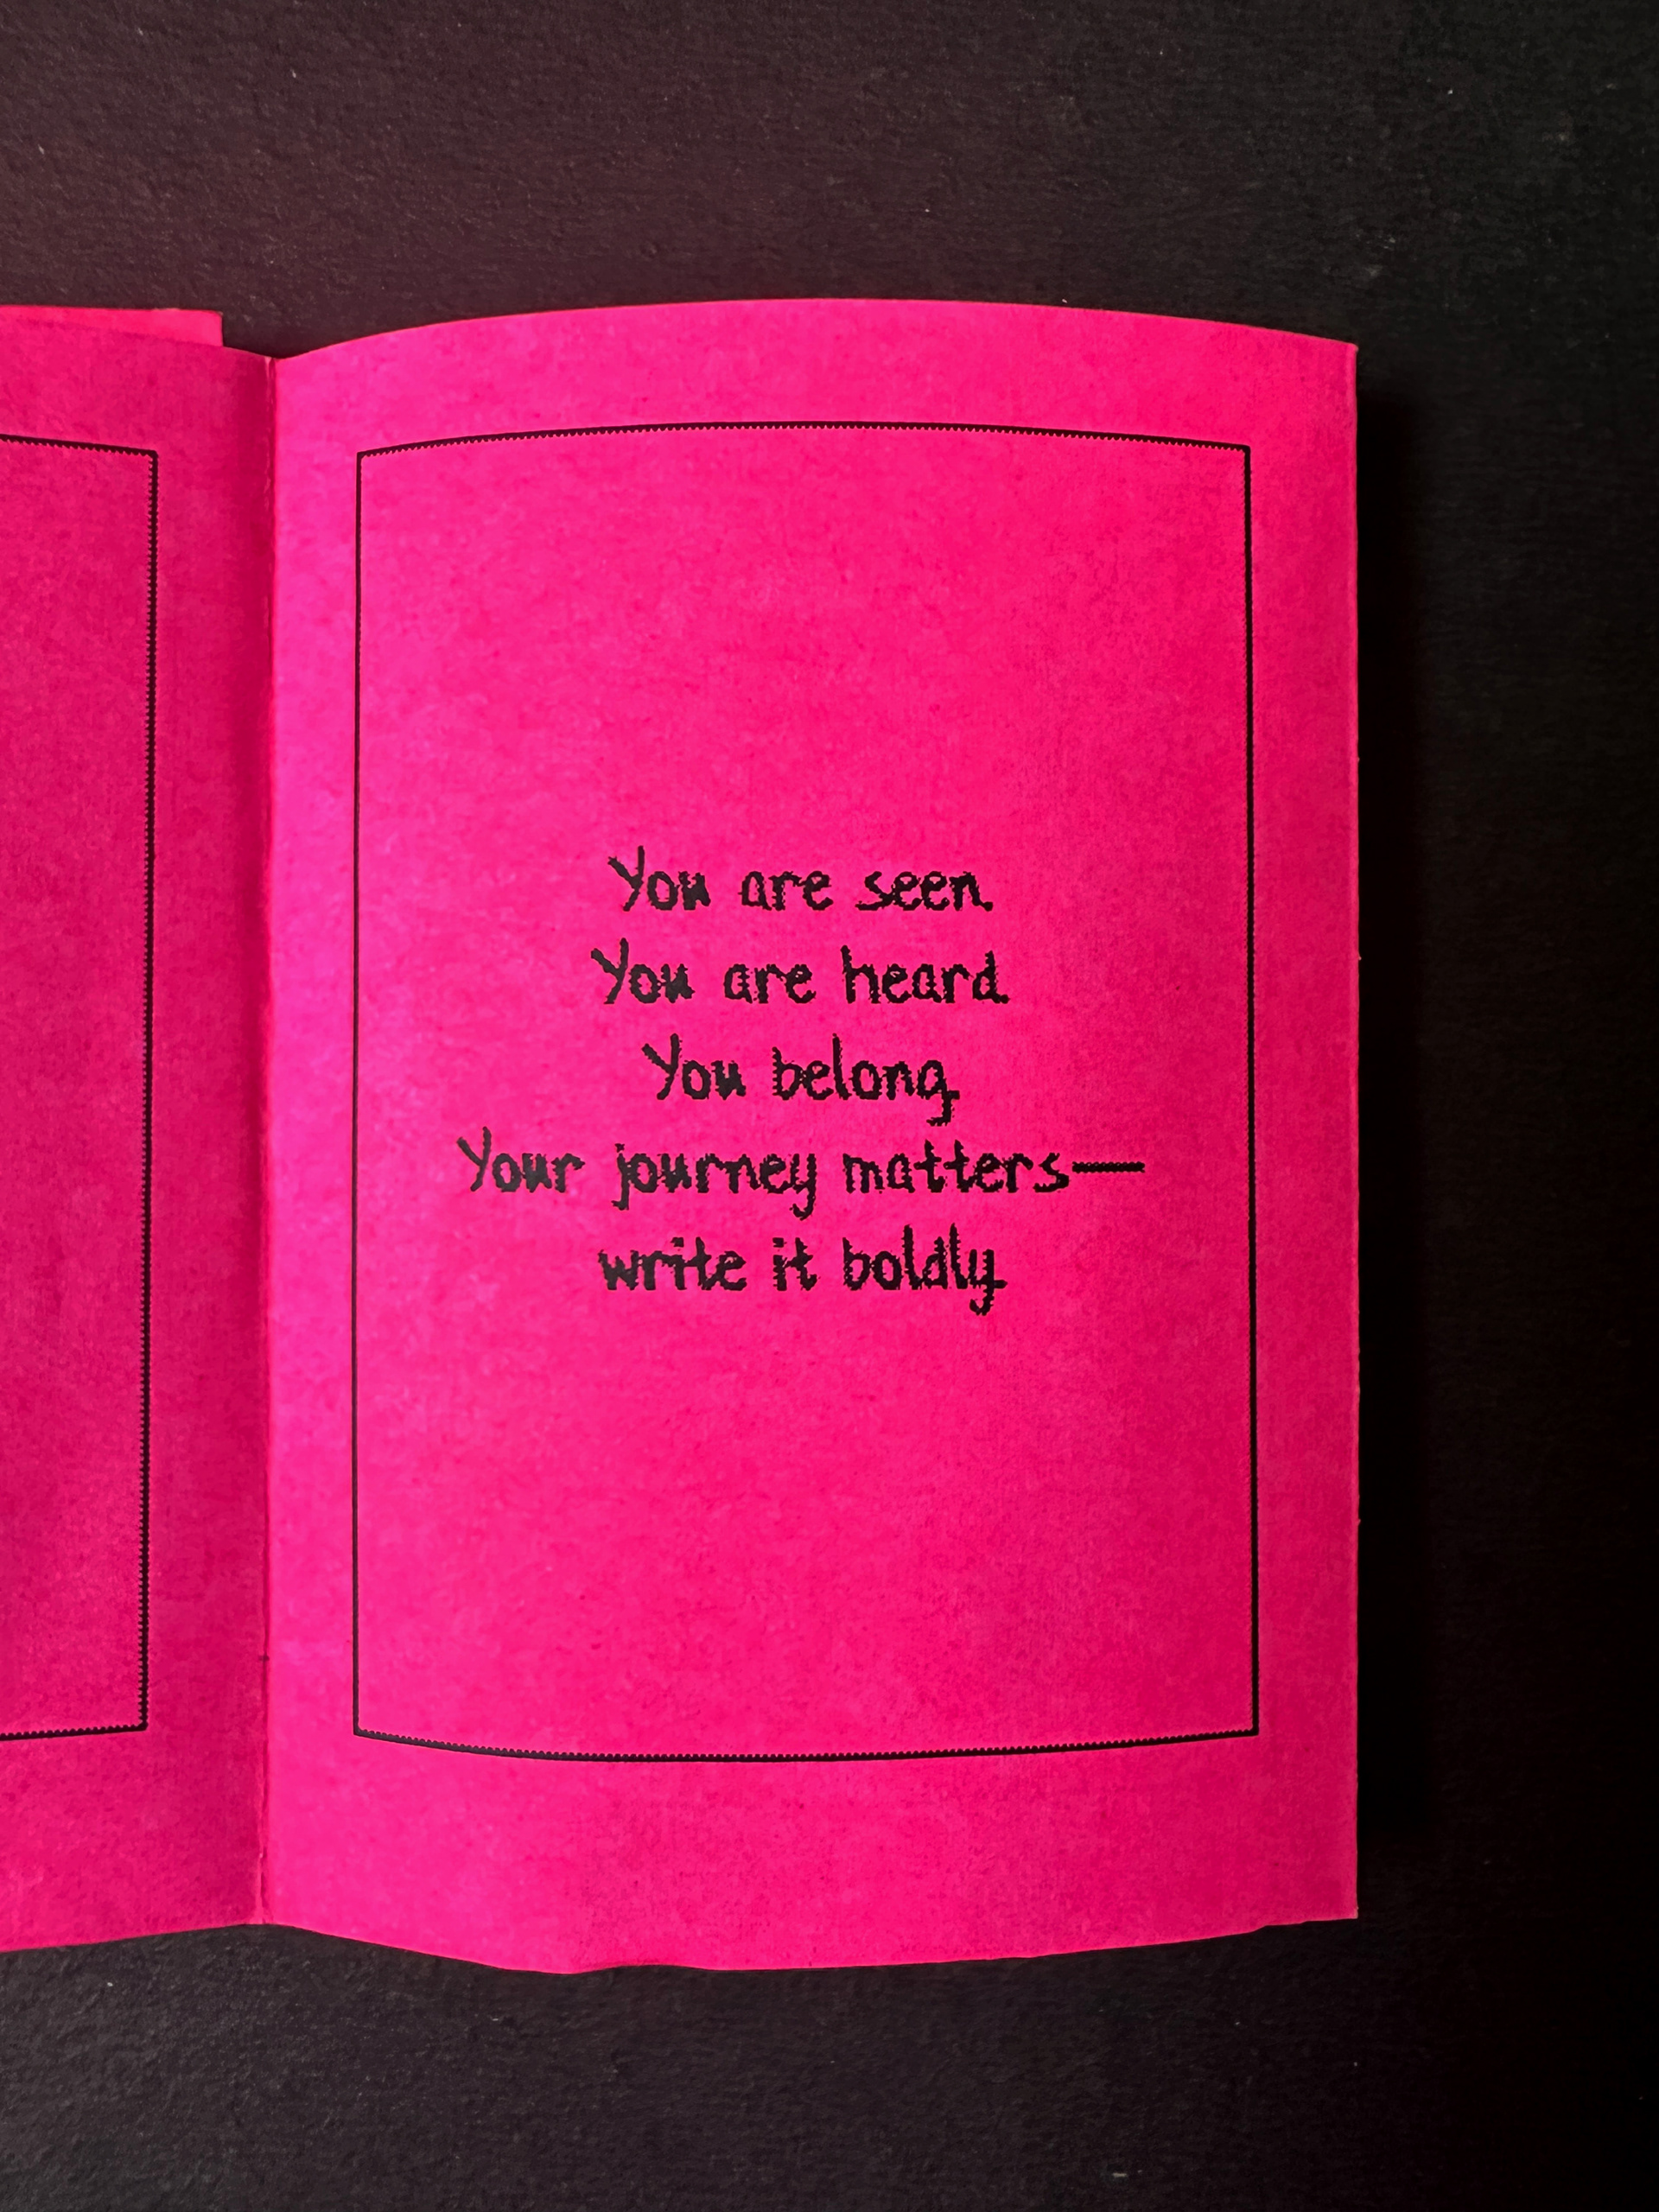 You are seen.
You are heard.
You belong.
Your journey matters—
write it boldly.